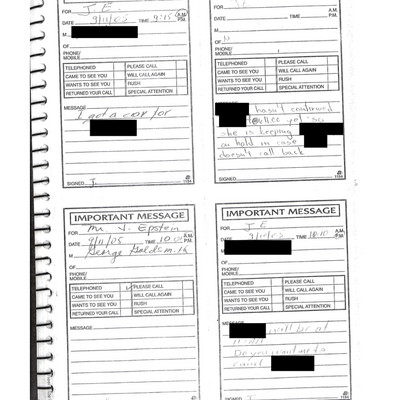 FOR J. E.
DATE 9/11/05 TIME 9:15 A.M. P.M.
M
OF
PHONE/
MOBILE
TELEPHONED PLEASE CALL
CAME TO SEE YOU WILL CALL AGAIN
WANTS TO SEE YOU RUSH
RETURNED YOUR CALL SPECIAL ATTENTION
MESSAGE
I got a car for
SIGNED J. 1184
FOR
DATE TIME A.M. P.M.
M
OF
PHONE/
MOBILE
TELEPHONED PLEASE CALL
CAME TO SEE YOU WILL CALL AGAIN
WANTS TO SEE YOU RUSH
RETURNED YOUR CALL SPECIAL ATTENTION
MESSAGE
hasn't confirmed
yet so
she is keeping
on hold in case
doesn't call back
SIGNED 1184
IMPORTANT MESSAGE
FOR Mr. J. Epstein
DATE 9/11/05 TIME 10:01 A.M. P.M.
M George Goldsmith
OF
PHONE/
MOBILE
TELEPHONED ✓ PLEASE CALL
CAME TO SEE YOU WILL CALL AGAIN
WANTS TO SEE YOU RUSH
RETURNED YOUR CALL SPECIAL ATTENTION
MESSAGE
IMPORTANT MESSAGE
FOR J. E
DATE 9/11/05 TIME 10:10 A.M. P.M.
OF
PHONE/
MOBILE
TELEPHONED PLEASE CALL
CAME TO SEE YOU WILL CALL AGAIN
WANTS TO SEE YOU RUSH
RETURNED YOUR CALL SPECIAL ATTENTION
MESSAGE
will be at
Do you want me to
SIGNED 1184